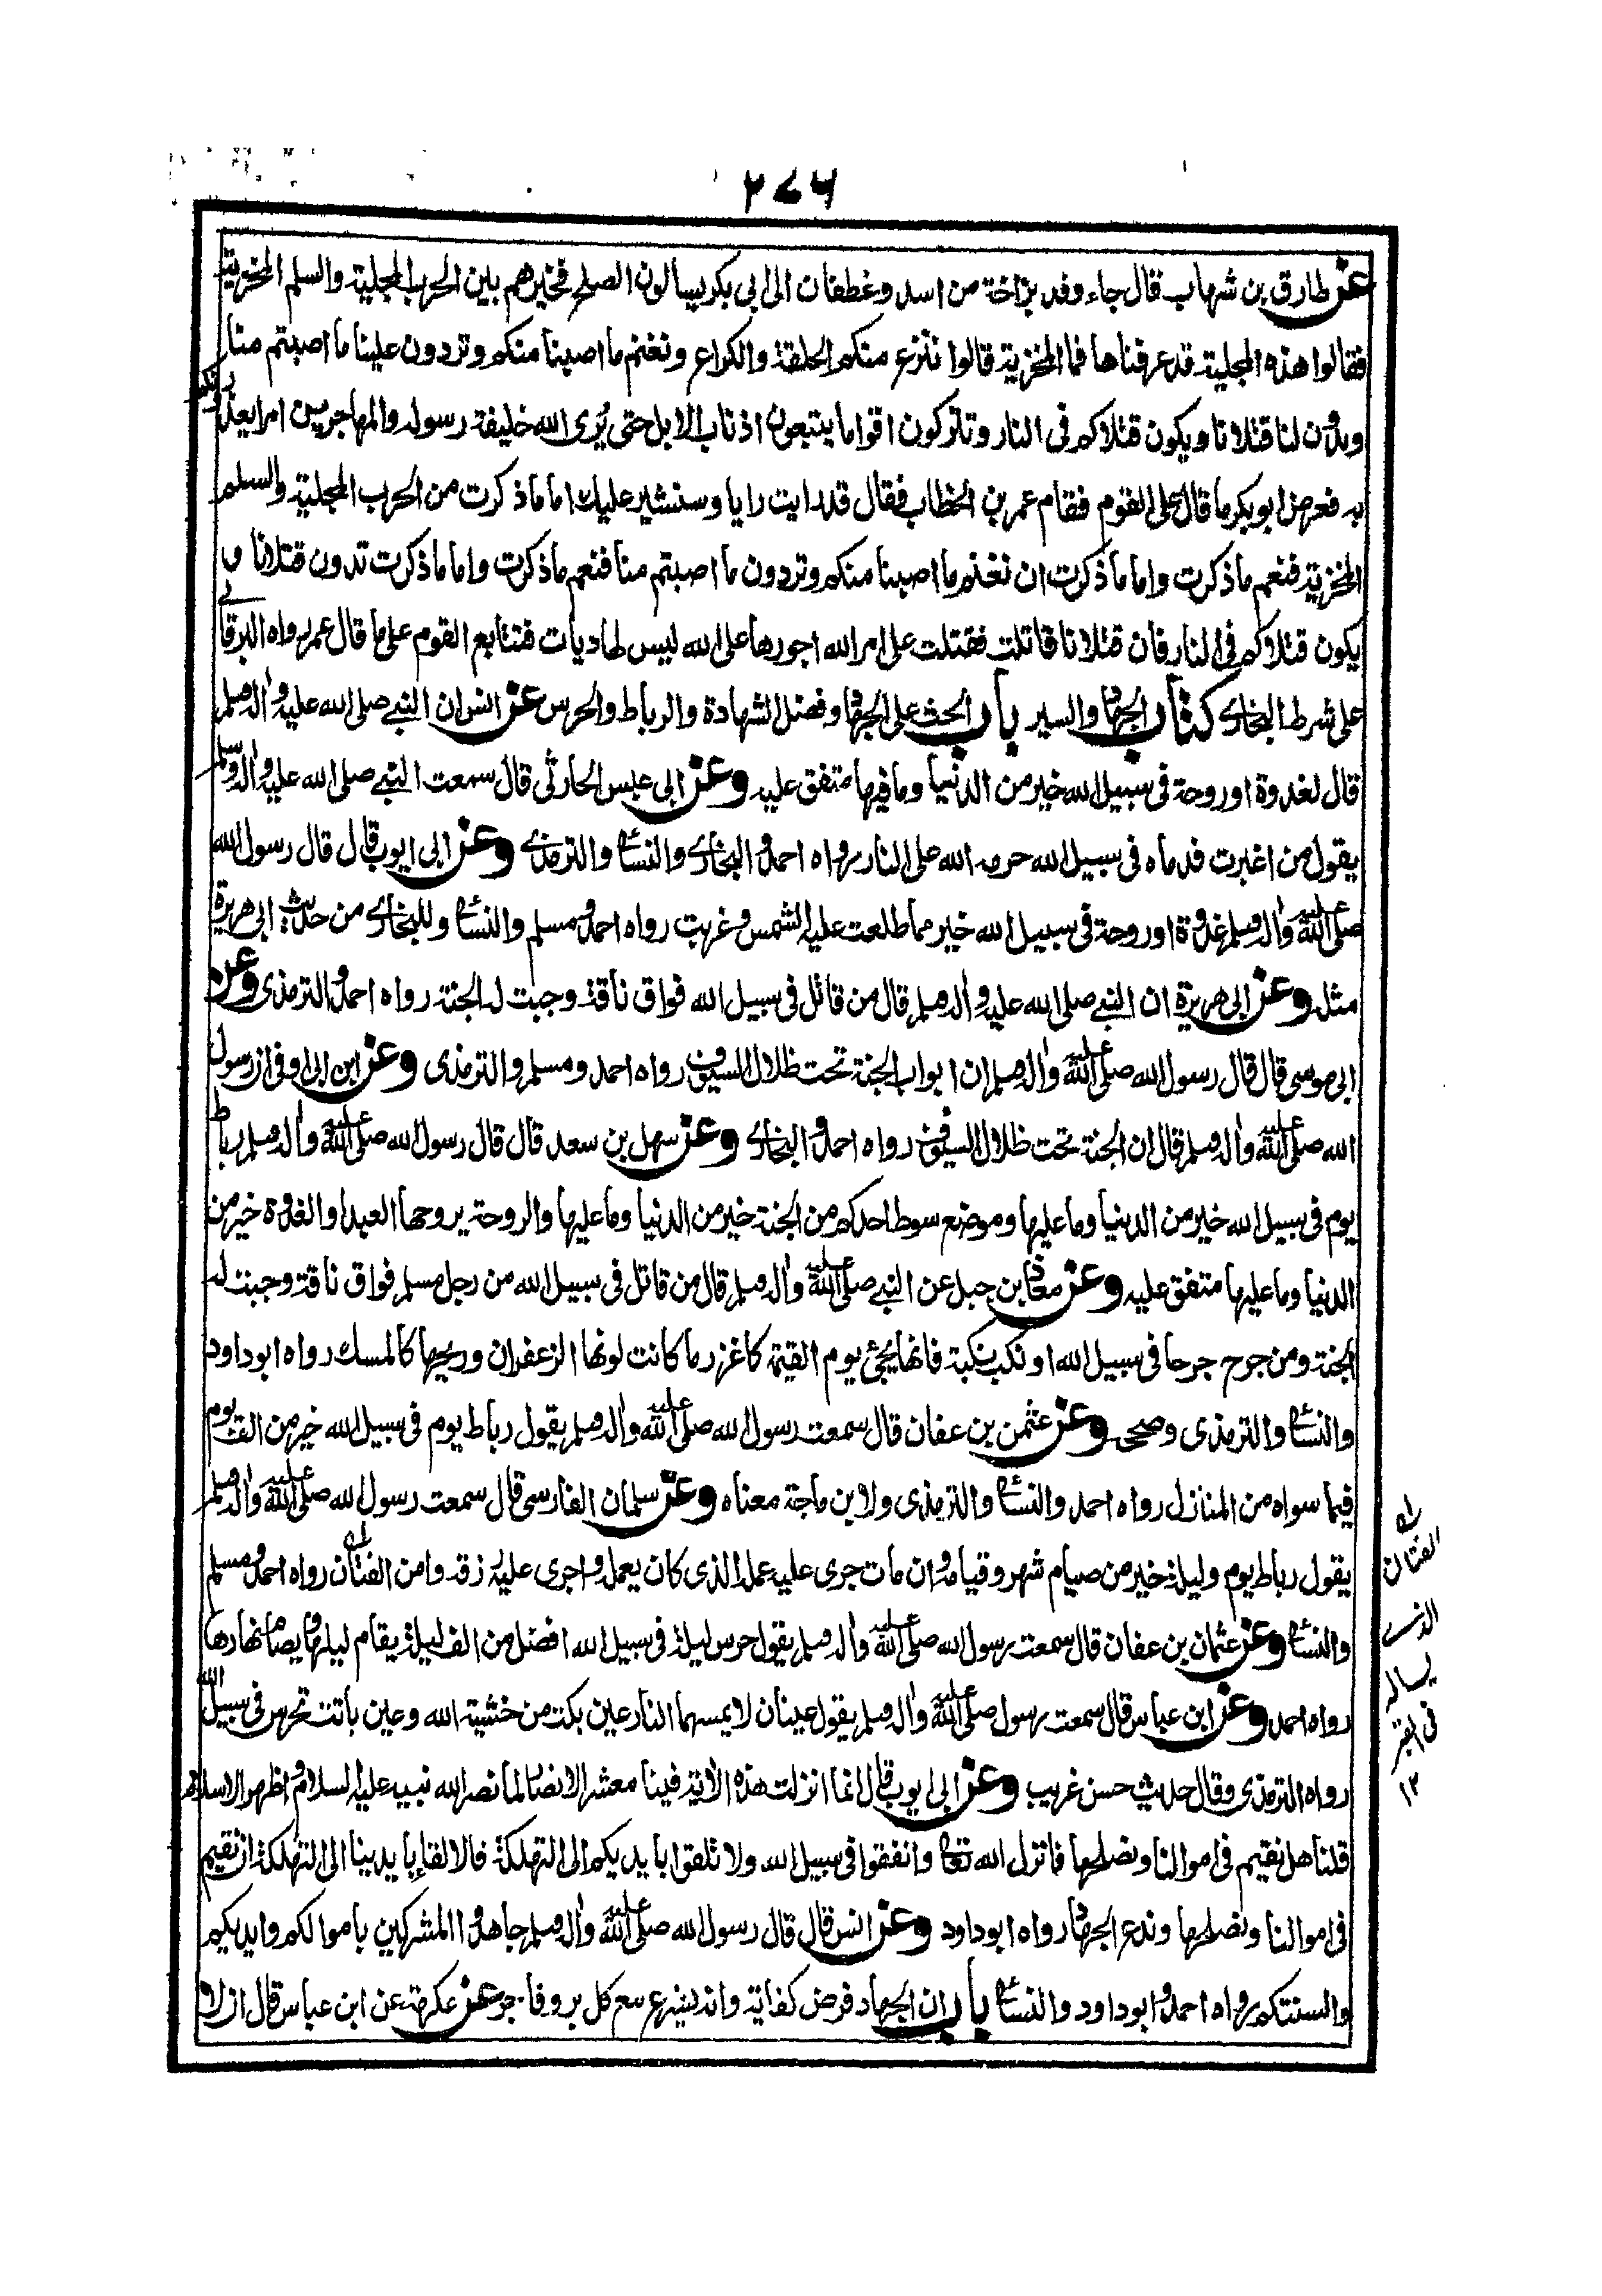 ٢٧٦
عن طارق بن شهاب قال جاء وفد بزاخة من اسد وغطفان الى ابي بكر يسالون الصلح فخيرهم بين الحرب المجلية والسلم المخزية
فقالوا هذه المجلية قد عرفناها فما المخزية قالوا ننزع منكم الحلقة والكراع ونغنم ما اصبنا منكم وتردون علينا ما اصبتم منا
وتدون لنا قتلانا ويكون قتلاكم فى النار وتتركون اقواما يتبعون اذناب الابل حتى يُرى الله خليفة رسوله والمهاجرين امرا يعذرونكم
به فعرض ابو بكر ما قال على القوم فقام عمر بن الخطاب فقال قد رايت رايا وسنشير عليك اما ما ذكرت من الحرب المجلية والسلم
المخزية فنعم ما ذكرت واما ما ذكرت ان نغنم ما اصبنا منكم وتردون ما اصبتم منا فنعم ما ذكرت واما ما ذكرت تدون قتلانا و
يكون قتلاكم فى النار فان قتلانا قاتلت فقتلت على امر الله اجورها على الله ليس لها ديات فتتابع القوم على ما قال عمر رواه البرقانى
على شرط البخارى كتاب الجهاد والسير باب الحث على الجهاد وفضل الشهادة والرباط والحرس عن انس ان النبى صلى الله عليه واله وسلم
قال لغدوة او روحة فى سبيل الله خير من الدنيا وما فيها متفق عليه وعن ابى عبس الحارثى قال سمعت النبى صلى الله عليه واله وسلم
يقول من اغبرت قدماه فى سبيل الله حرمه الله على النار رواه احمد والبخارى والنسائى والترمذى وعن ابى ايوب قال قال رسول الله
صلى الله عليه واله وسلم غدوة او روحة فى سبيل الله خير مما طلعت عليه الشمس وغربت رواه احمد ومسلم والنسائى وللبخارى من حديث ابى هريرة
مثله وعن ابى هريرة ان النبى صلى الله عليه واله وسلم قال من قاتل فى سبيل الله فواق ناقة وجبت له الجنة رواه احمد والترمذى وعن
ابى موسى قال قال رسول الله صلى الله عليه واله وسلم ان ابواب الجنة تحت ظلال السيوف رواه احمد ومسلم والترمذى وعن ابن ابى اوفى ان رسول
الله صلى الله عليه واله وسلم قال ان الجنة تحت ظلال السيوف رواه احمد والبخارى وعن سهل بن سعد قال قال رسول الله صلى الله عليه واله وسلم رباط
يوم فى سبيل الله خير من الدنيا وما عليها وموضع سوط احدكم من الجنة خير من الدنيا وما عليها والروحة يروحها العبد او الغدوة خير من
الدنيا وما عليها متفق عليه وعن معاذ بن جبل عن النبى صلى الله عليه واله وسلم قال من قاتل فى سبيل الله من رجل مسلم فواق ناقة وجبت له
الجنة ومن جرح جرحا فى سبيل الله او نكب نكبة فانها يجئ يوم القيمة كاغزر ما كانت لونها الزعفران وريحها كالمسك رواه ابو داود
والنسائى والترمذى وصححه وعن عثمن بن عفان قال سمعت رسول الله صلى الله عليه واله وسلم يقول رباط يوم فى سبيل الله خير من الف يوم
فيما سواه من المنازل رواه احمد والنسائى والترمذى ولابن ماجة معناه وعن سلمان الفارسى قال سمعت رسول الله صلى الله عليه واله وسلم
يقول رباط يوم وليلة خير من صيام شهر وقيامه وان مات جرى عليه عمله الذى كان يعمله واجرى عليه رزقه وامن الفتان رواه احمد ومسلم
والنسائى وعن عثمان بن عفان قال سمعت رسول الله صلى الله عليه واله وسلم يقول حرس ليلة فى سبيل الله افضل من الف ليلة يقام ليلها ويصام نهارها
رواه احمد وعن ابن عباس قال سمعت رسول صلى الله عليه واله وسلم يقول عينان لا يمسهما النار عين بكت من خشية الله وعين باتت تحرس فى سبيل الله
رواه الترمذى وقال حديث حسن غريب وعن ابى ايوب قال انما انزلت هذه الاية فينا معشر الانصار لما نصر الله نبيه عليه السلام واظهر الاسلام
قلنا هل نقيم فى اموالنا ونصلحها فانزل الله تعالى وانفقوا فى سبيل الله ولا تلقوا بايديكم الى التهلكة فالالقاء بايدينا الى التهلكة ان نقيم
فى اموالنا ونصلحها وندع الجهاد رواه ابو داود وعن انس قال قال رسول الله صلى الله عليه واله وسلم جاهدوا المشركين باموالكم وايديكم
والسنتكم رواه احمد وابو داود والنسائى باب ان الجهاد فرض كفاية وانه يشرع مع كل بر وفاجر عن عكرمة عن ابن عباس قال ان لا
الفتان
الذى
يساله
فى القبر
١٢